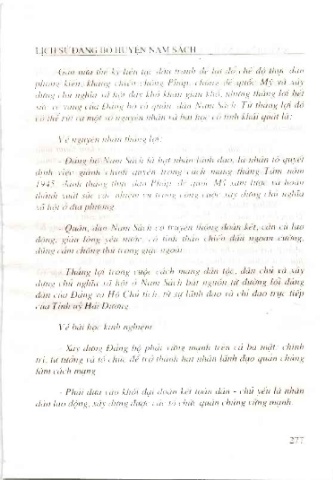 LỊCH SỬ ĐẢNG BỘ HUYỆN NAM SÁCH
Gần nửa thế kỷ liên tục đấu tranh để lật đổ chế độ thực dân
phong kiến, kháng chiến chống Pháp, chống đế quốc Mỹ và xây
dựng chủ nghĩa xã hội đầy khó khăn gian khổ, nhưng thắng lợi hết
sức vẻ vang của Đảng bộ và quân dân Nam Sách. Từ thắng lợi đó
có thể rút ra một số nguyên nhân và bài học có tính khái quát là:
Về nguyên nhân thắng lợi:
- Đảng bộ Nam Sách là hạt nhân lãnh đạo, là nhân tố quyết
định việc giành chính quyền trong cách mạng tháng Tám năm
1945, đánh thắng thực dân Pháp, đế quốc Mỹ xâm lược và hoàn
thành xuất sắc các nhiệm vụ trong công cuộc xây dựng chủ nghĩa
xã hội ở địa phương.
- Quân, dân Nam Sách có truyền thống đoàn kết, cần cù lao
động, giàu lòng yêu nước, có tinh thần chiến đấu ngoan cường,
dũng cảm chống thù trong giặc ngoài.
- Thắng lợi trong cuộc cách mạng dân tộc, dân chủ và xây
dựng chủ nghĩa xã hội ở Nam Sách bắt nguồn từ đường lối đúng
đắn của Đảng và Hồ Chủ tịch, từ sự lãnh đạo và chỉ đạo trực tiếp
của Tỉnh uỷ Hải Dương.
Về bài học kinh nghiệm:
- Xây dựng Đảng bộ phải vững mạnh trên cả ba mặt: chính
trị, tư tưởng và tổ chức để trở thành hạt nhân lãnh đạo quần chúng
làm cách mạng.
- Phải dựa vào khối đại đoàn kết toàn dân - chủ yếu là nhân
dân lao động, xây dựng được các tổ chức quần chúng vững mạnh.
277